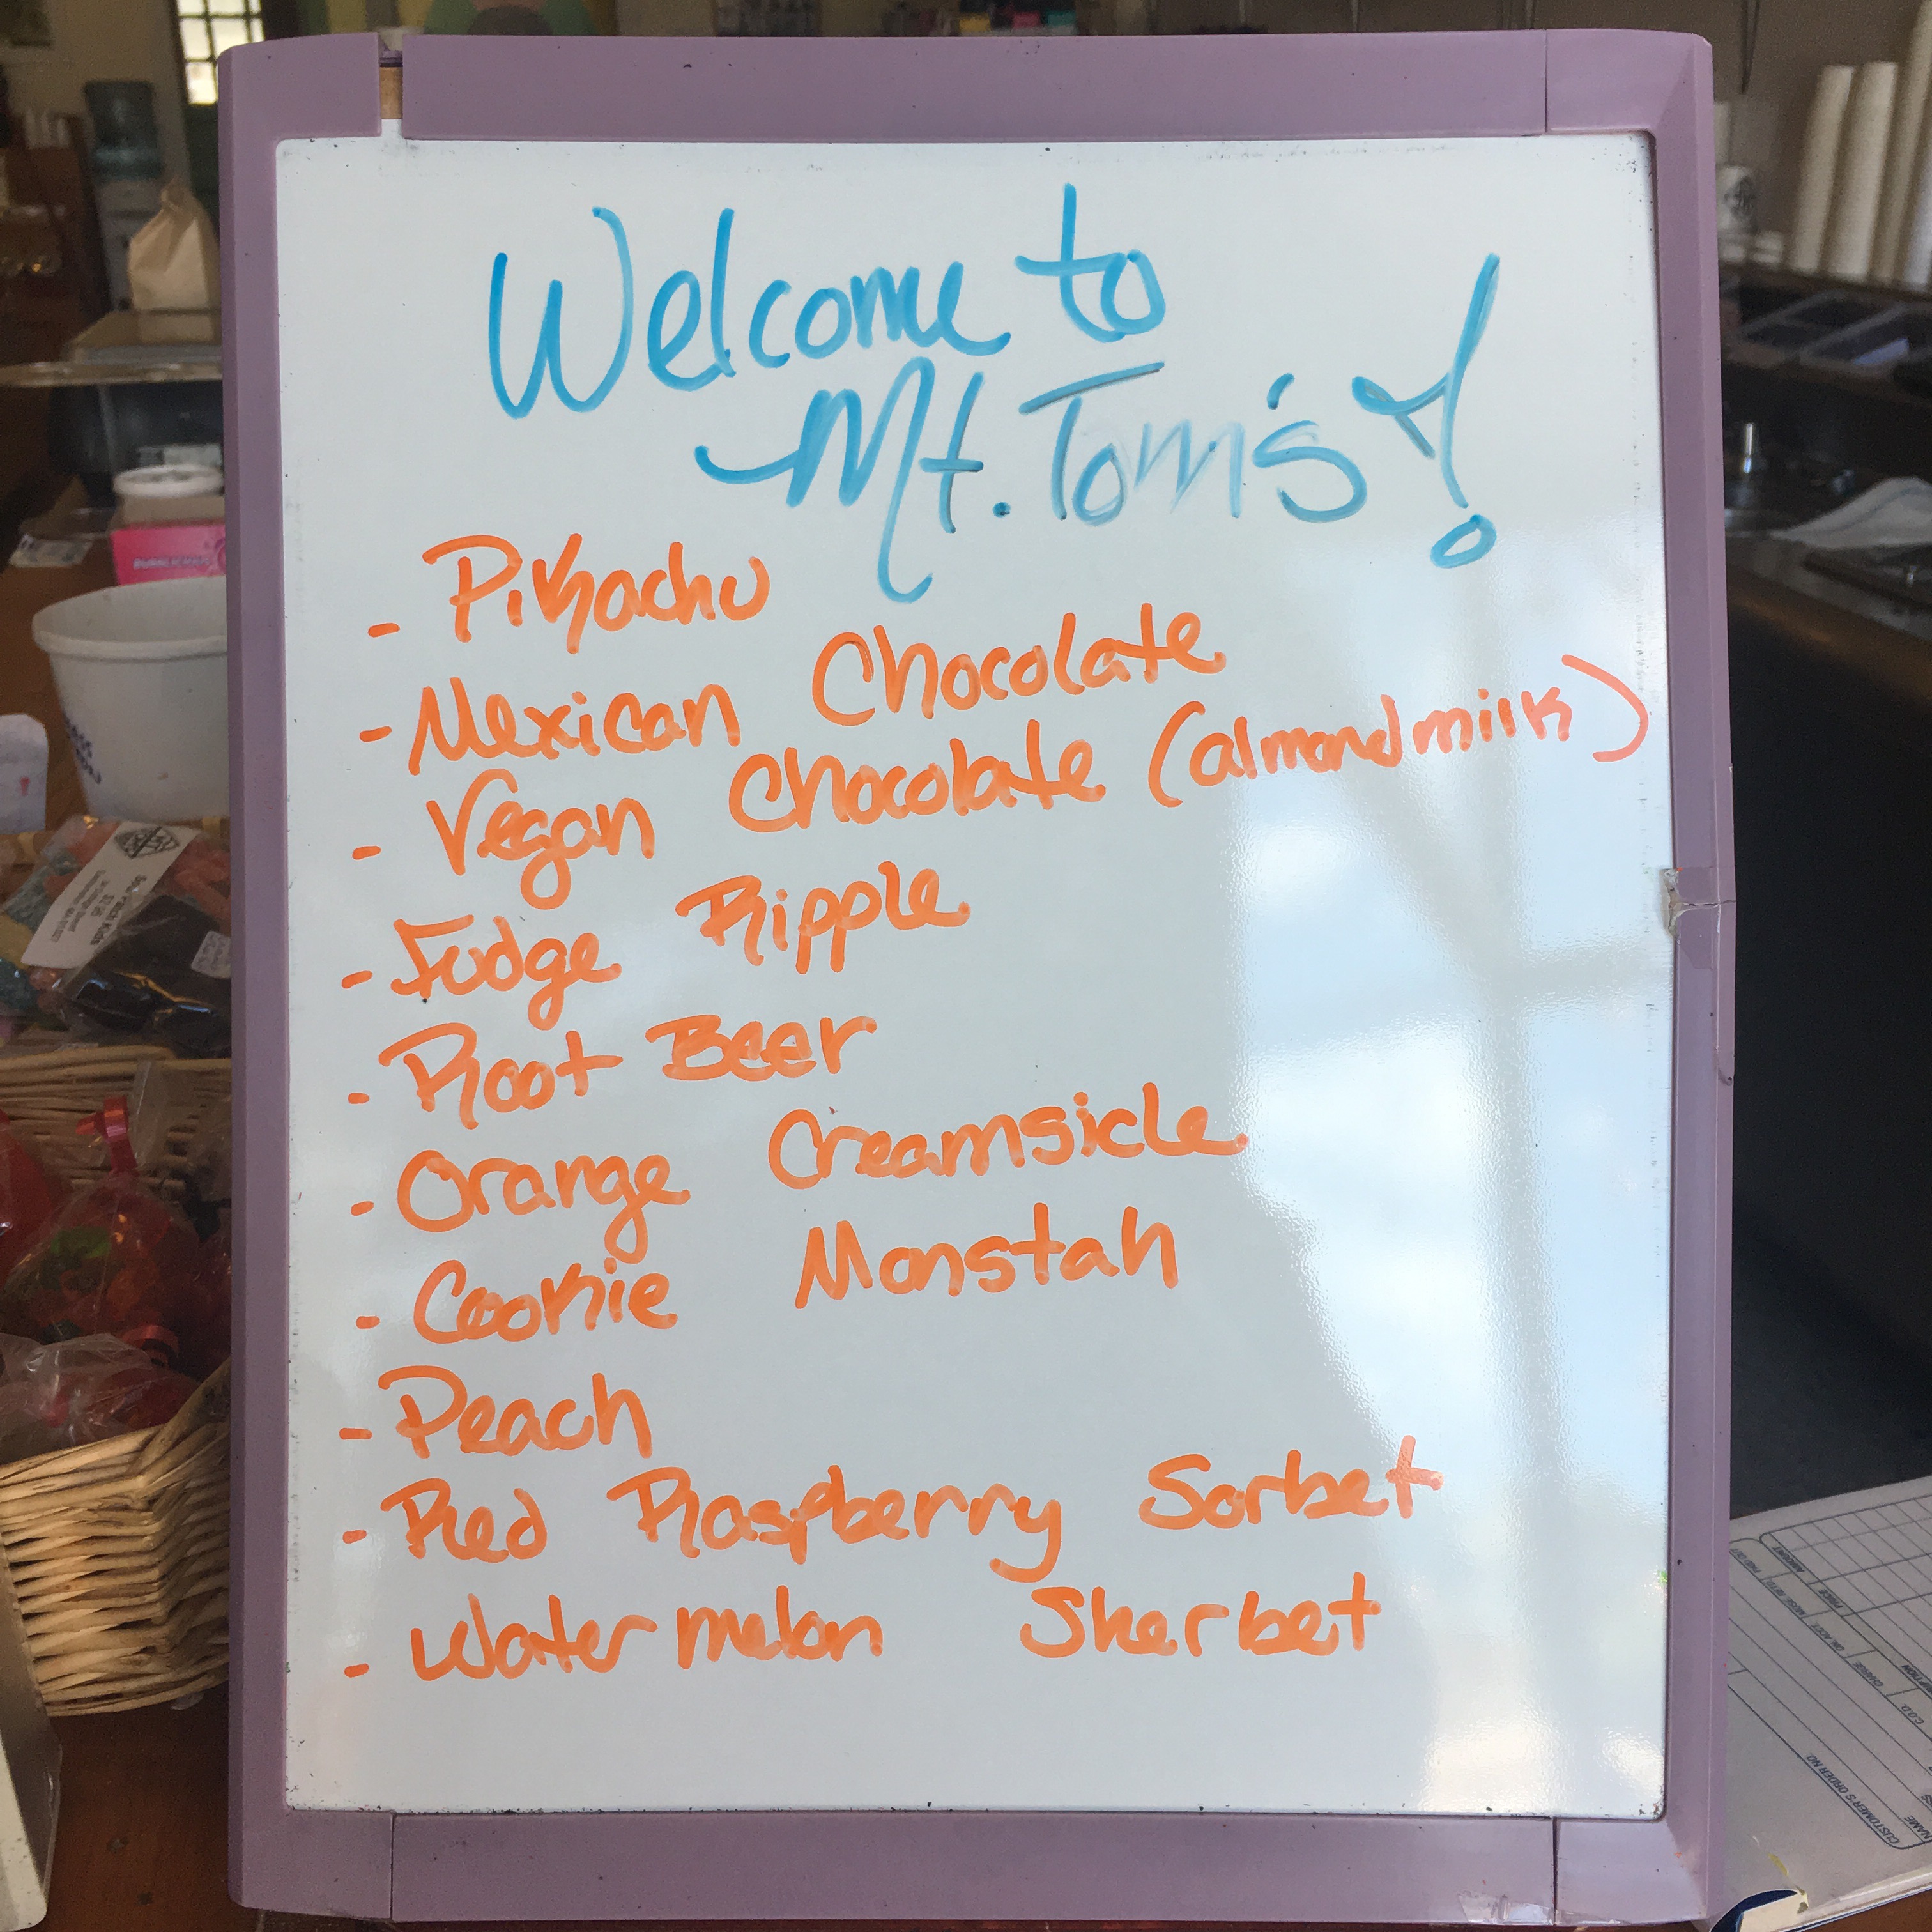 Welcome to
Mt. Tom's!
- Pikachu
- Mexican Chocolate
- Vegan Chocolate (almond milk)
- Fudge Ripple
- Root Beer
- Orange Creamsicle
- Cookie Monstah
- Peach
- Red Raspberry Sorbet
- Watermelon Sherbet
CUSTOMER'S ORDER NO.
NAME